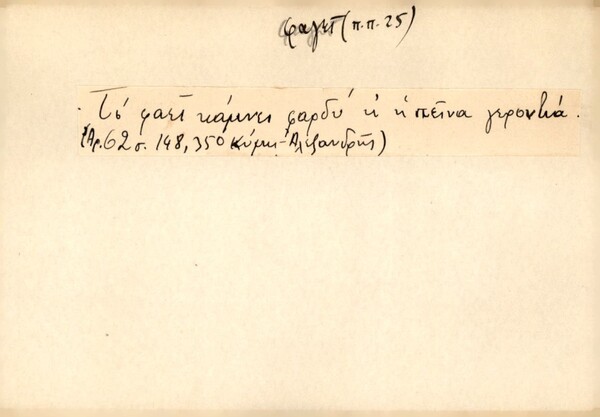 φαγεῖ (π.π. 25)
Τὸ φαεῖ κάμνει φαρδὺ κ' ἡ πεῖνα γερονδιά.
(Ἀρ. 62 σ. 148, 350 Κύμης - Ἀλεξανδρῆς)